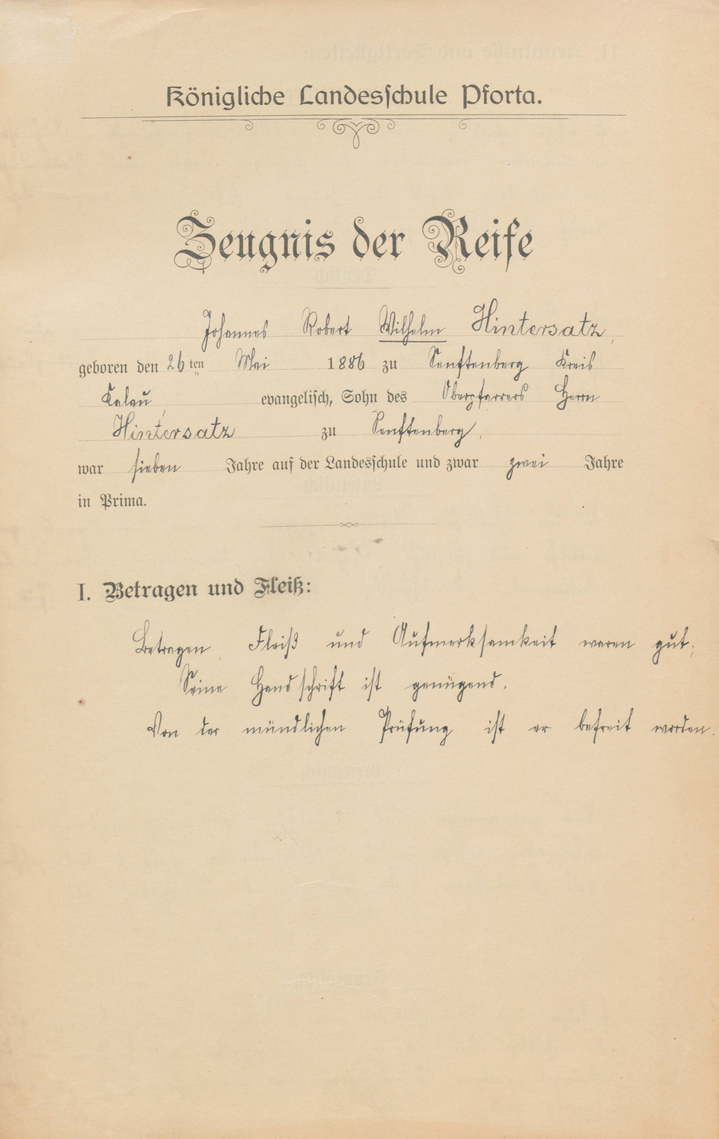 Königliche Landesschule Pforta.
Zeugnis der Reife
Johannes Robert Wilhelm Hintersatz,
geboren den 26ten Mai 1886 zu Senftenberg Kreis
Kalau evangelisch, Sohn des Oberpfarrers Herrn
Hintersatz zu Senftenberg,
war sieben Jahre auf der Landesschule und zwar zwei Jahre
in Prima.
I. Betragen und Fleiß:
Betragen, Fleiß und Aufmerksamkeit waren gut;
Seine Handschrift ist genügend.
Von der mündlichen Prüfung ist er befreit worden.